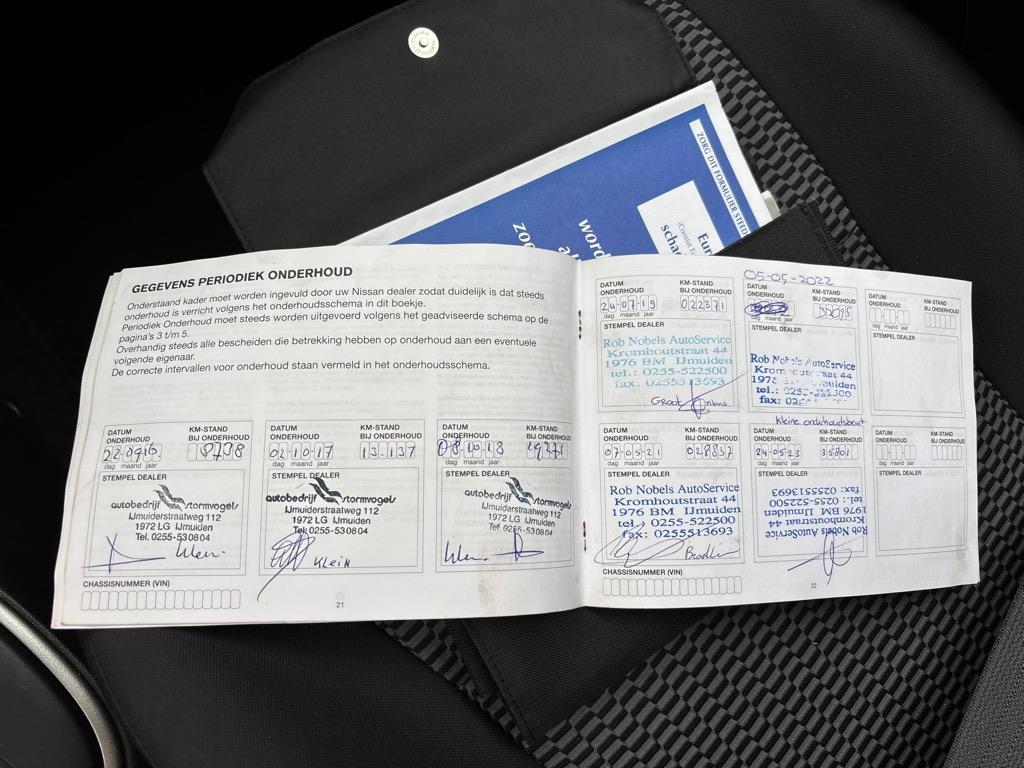 ZORG DIT FORMULIER STEED
GEGEVENS PERIODIEK ONDERHOUD
Onderstaand kader moet worden ingevuld door uw Nissan dealer zodat duidelijk is dat steeds
onderhoud is verricht volgens het onderhoudsschema in dit boekje.
Periodiek Onderhoud moet steeds worden uitgevoerd volgens het geadviseerde schema op de
pagina's 3 t/m 5.
Overhandig steeds alle bescheiden die betrekking hebben op onderhoud aan een eventuele
volgende eigenaar.
De correcte intervallen voor onderhoud staan vermeld in het onderhoudsschema.
DATUM ONDERHOUD
KM-STAND BIJ ONDERHOUD
22-09-16
8798
dag maand jaar
STEMPEL DEALER
autobedrijf Stormvogels
IJmuiderstraatweg 112
1972 LG IJmuiden
Tel. 0255-530804
DATUM ONDERHOUD
KM-STAND BIJ ONDERHOUD
02-10-17
13.137
dag maand jaar
STEMPEL DEALER
autobedrijf Stormvogels
IJmuiderstraatweg 112
1972 LG IJmuiden
Tel. 0255-530804
KLEIN
DATUM ONDERHOUD
KM-STAND BIJ ONDERHOUD
08-10-18
dag maand jaar
STEMPEL DEALER
autobedrijf Stormvogels
IJmuiderstraatweg 112
1972 LG IJmuiden
Tel. 0255-530804
CHASSISNUMMER (VIN)
21
DATUM ONDERHOUD
KM-STAND BIJ ONDERHOUD
24-07-19
022371
dag maand jaar
STEMPEL DEALER
Rob Nobels AutoService
Kromhoutstraat 44
1976 BM IJmuiden
tel.: 0255-522500
fax: 0255513693
Groot
05-05-2022
DATUM ONDERHOUD
KM-STAND BIJ ONDERHOUD
dag maand jaar
STEMPEL DEALER
Rob Nobels AutoService
Kleine onderhoudsbeurt
DATUM ONDERHOUD
KM-STAND BIJ ONDERHOUD
dag maand jaar
STEMPEL DEALER
DATUM ONDERHOUD
KM-STAND BIJ ONDERHOUD
07-05-21
028837
dag maand jaar
STEMPEL DEALER
Rob Nobels AutoService
Kromhoutstraat 44
1976 BM IJmuiden
tel.: 0255-522500
fax: 0255513693
DATUM ONDERHOUD
KM-STAND BIJ ONDERHOUD
24-05-23
35801
dag maand jaar
STEMPEL DEALER
Rob Nobels AutoService
Kromhoutstraat 44
1976 BM IJmuiden
tel.: 0255-522500
fax: 0255513693
DATUM ONDERHOUD
KM-STAND BIJ ONDERHOUD
dag maand jaar
STEMPEL DEALER
CHASSISNUMMER (VIN)
22